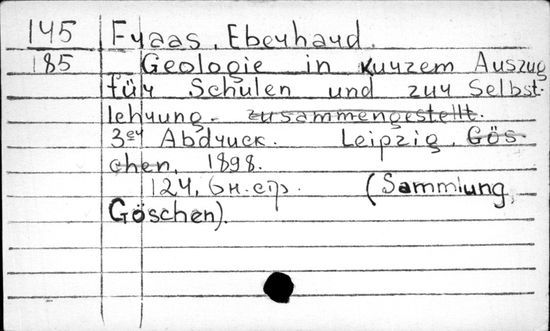 145 Fraas, Eberhard.
185 Geologie in kurzem Auszug
für Schulen und zur Selbst-
lehrung. zusammengestellt.
3er Abdruck. Leipzig, Gös-
chen, 1898.
124, 6н. стр. (Sammlung
Göschen).